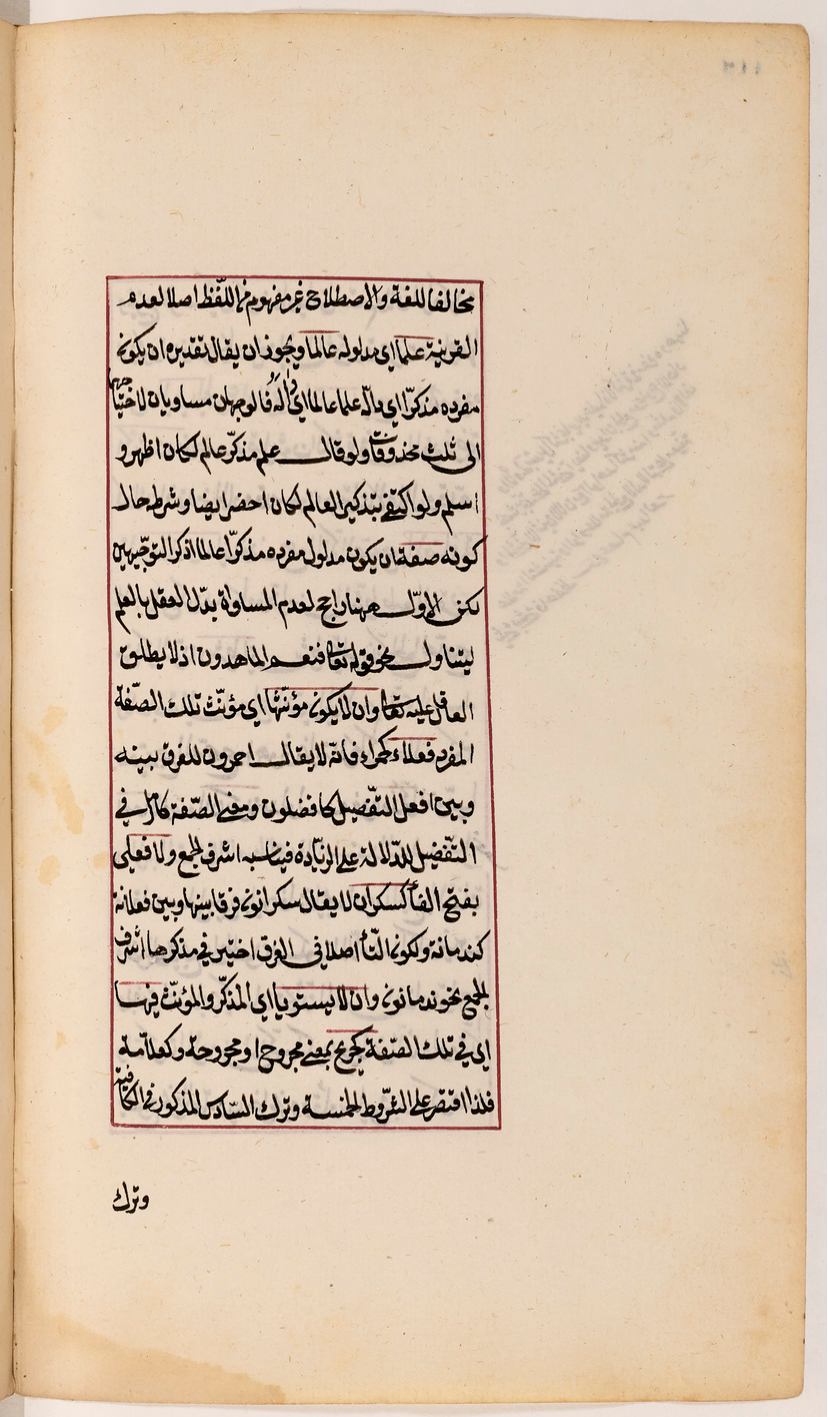 مخالفا للغة والاصطلاح غير مفهوم من اللفظ اصلا لعدم
القرينة علما اى مدلوله عالما ويجوز ان يقال تقديره ان يكون
مفرده مذكرّا اى دالّه علما عالما اى فالوجهان مساويان لاحتياجهما
الى ثلث محذوفات ولو قال علم مذكّر عالم لكان اظهر و
اسلم ولو اكتفى بتذكير العالم لكان احضر ايضا وشرطه حال
كونه صفة ان يكون مدلول مفرده مذكرّا عالما اذكر التوجّيهين
لكن الاوّل ههنا راجح لعدم المساواة بدّل العقل بالعلم
ليتناول نحو قوله تعا فنعم الماهدون اذ لا يطلق
العاقل عليه تعا وان لا يكون مؤنثها اى مؤنّث تلك الصّفة
المفرد فعلاء كحمراء فانّه لا يقال احمرون للفرق بينه
وبين افعل التّفصيل كافضلون ومعنى الصّفة كامل فى
التّفضيل للدّلالة على الزيّادة فيناسبه اشرف الجمع ولا فعلى
بفتح الفأ كسكران لا يقال سكرانون فرقا بينها وبين فعلانة
كندمانة ولكون التّأ اصلا فى الفرق اختير فى مذكرها اشرف
الجمع نحو ندمانون وان لا يستويا اى المذكّر والمؤنّث فيها
اى فى تلك الصّفة كجريح بمعنى مجروح او مجروحة وكعلاّمة
فلذا اقتصر على الشّروط الخمسة وترك السّادس المذكور فى الكافية
وترك